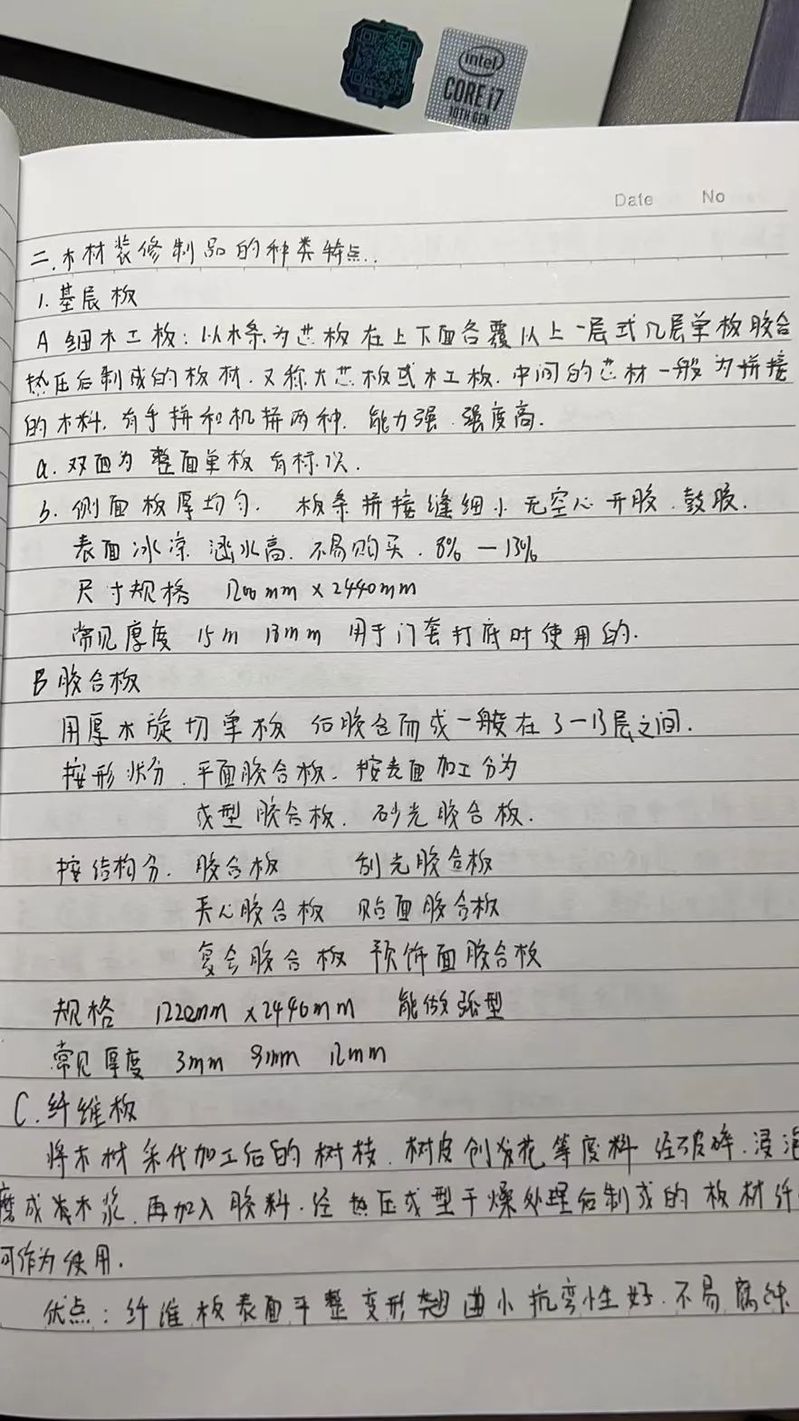 intel
CORE i7
10TH GEN
Date No
二.木材装修制品的种类特点..
1.基层板
A 细木工板：以木条为芯板在上下面各覆以上一层或几层单板胶合
热压后制成的板材.又称大芯板或木工板.中间的芯材一般为拼接
的木料.有手拼和机拼两种.能力强.强度高.
a.双面为整面单板有标识.
b.侧面板厚均匀.板条拼接缝细小无空心开胶.鼓胶.
表面冰凉 涵水高.不易购买.8% — 13%
尺寸规格 1200mm×2440mm
常见厚度 15m 18mm 用于门套打底时使用的.
B 胶合板
用厚木旋切单板 后胶合而成一般在3—13层之间.
按形状分.平面胶合板.按表面加工分为
成型胶合板.砂光胶合板.
按结构分.胶合板 刮光胶合板
夹心胶合板 贴面胶合板
复合胶合板 预饰面胶合板
规格 1220mm×2440mm 能做弧型
常见厚度 3mm 9mm 12mm
C.纤维板
将木材采代加工后的树枝.树皮创发花等废料经破碎.浸泡
磨成木浆.再加入胶料.经热压成型干燥处理后制成的板材纤
可作为使用.
优点：纤维板表面平整变形翘曲小抗弯性好.不易腐